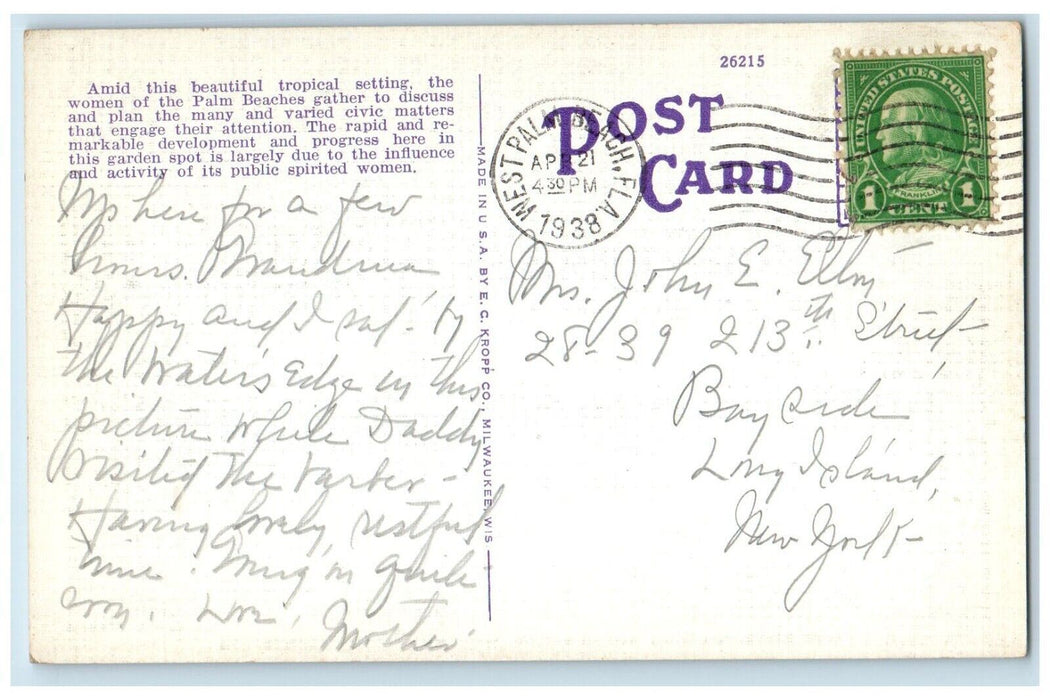 Amid this beautiful tropical setting, the
women of the Palm Beaches gather to discuss
and plan the many and varied civic matters
that engage their attention. The rapid and re-
markable development and progress here in
this garden spot is largely due to the influence
and activity of its public spirited women.
here for a few
hours. Grandma
Happy and I sat by
the water's edge in this
picture while Daddy
visited the barber -
Having lovely restful
time.
Love,
Mother
MADE IN U.S.A. BY E. C. KROPP CO., MILWAUKEE, WIS.
26215
POST
CARD
WEST PALM BEACH, FLA.
APR 21
4 30 PM
1938
UNITED STATES POSTAGE
FRANKLIN
1 CENT 1
Mrs. John E.
28-39 213th Street,
Bayside
Long Island,
New York